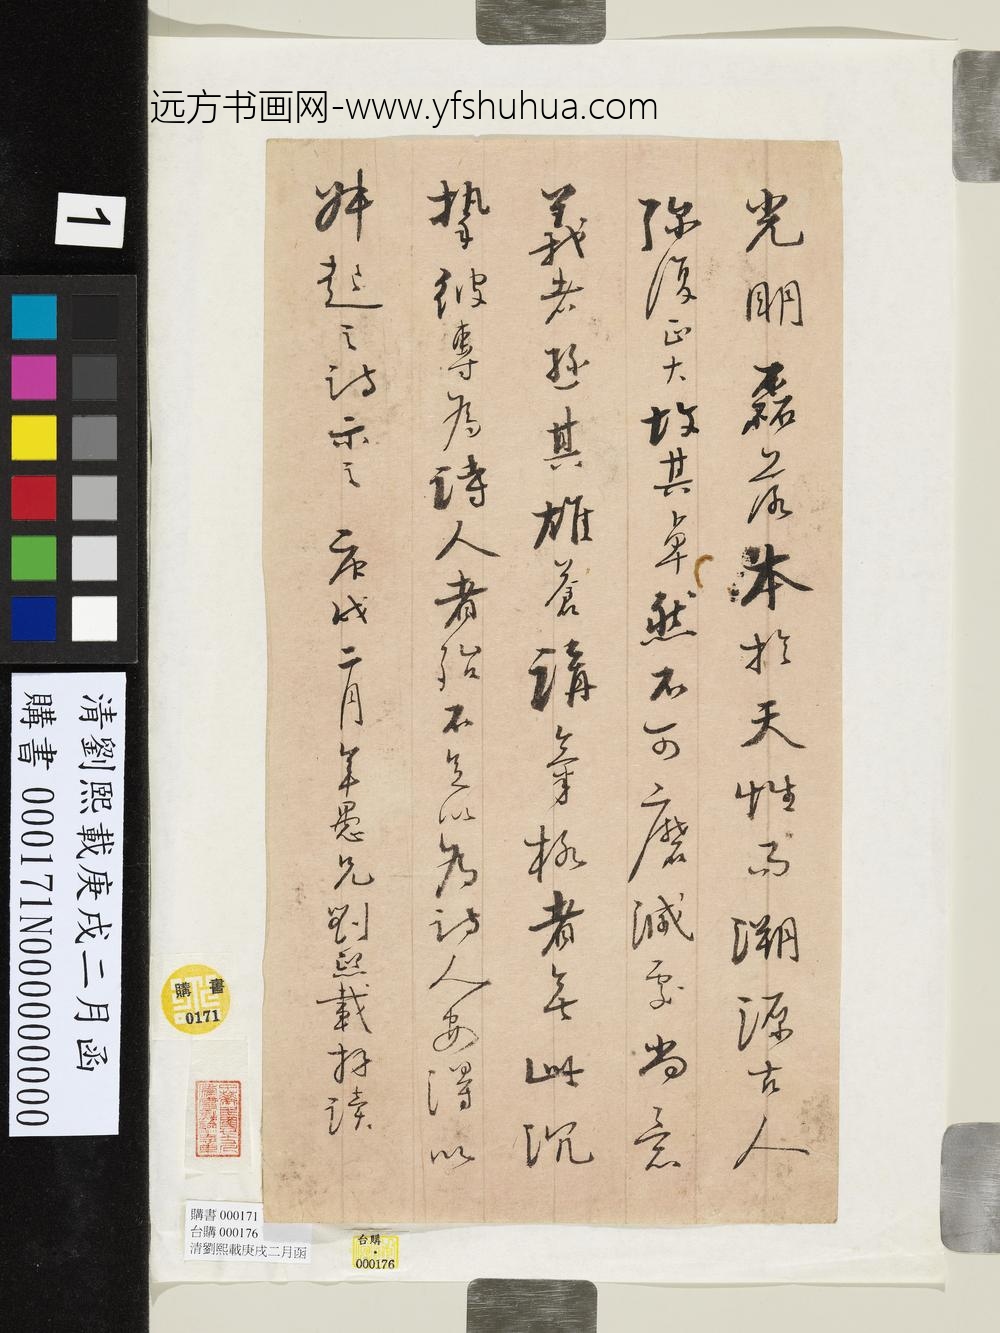 远方书画网-www.yfshuhua.com
光明磊落本於天性而溯源古人
弥復正大故其卓然不可磨滅處尚意
義老遜其雄蒼講氣極者無此沉
摯彼專為詩人者殆不足以為詩人安得以
起之詩示之 庚戌二月年愚兄劉熙載拜讀
1
清劉熙載庚戌二月函
購書 000171N000000000
購書
0171
購書 000171
台購 000176
清劉熙載庚戌二月函
台購
000176